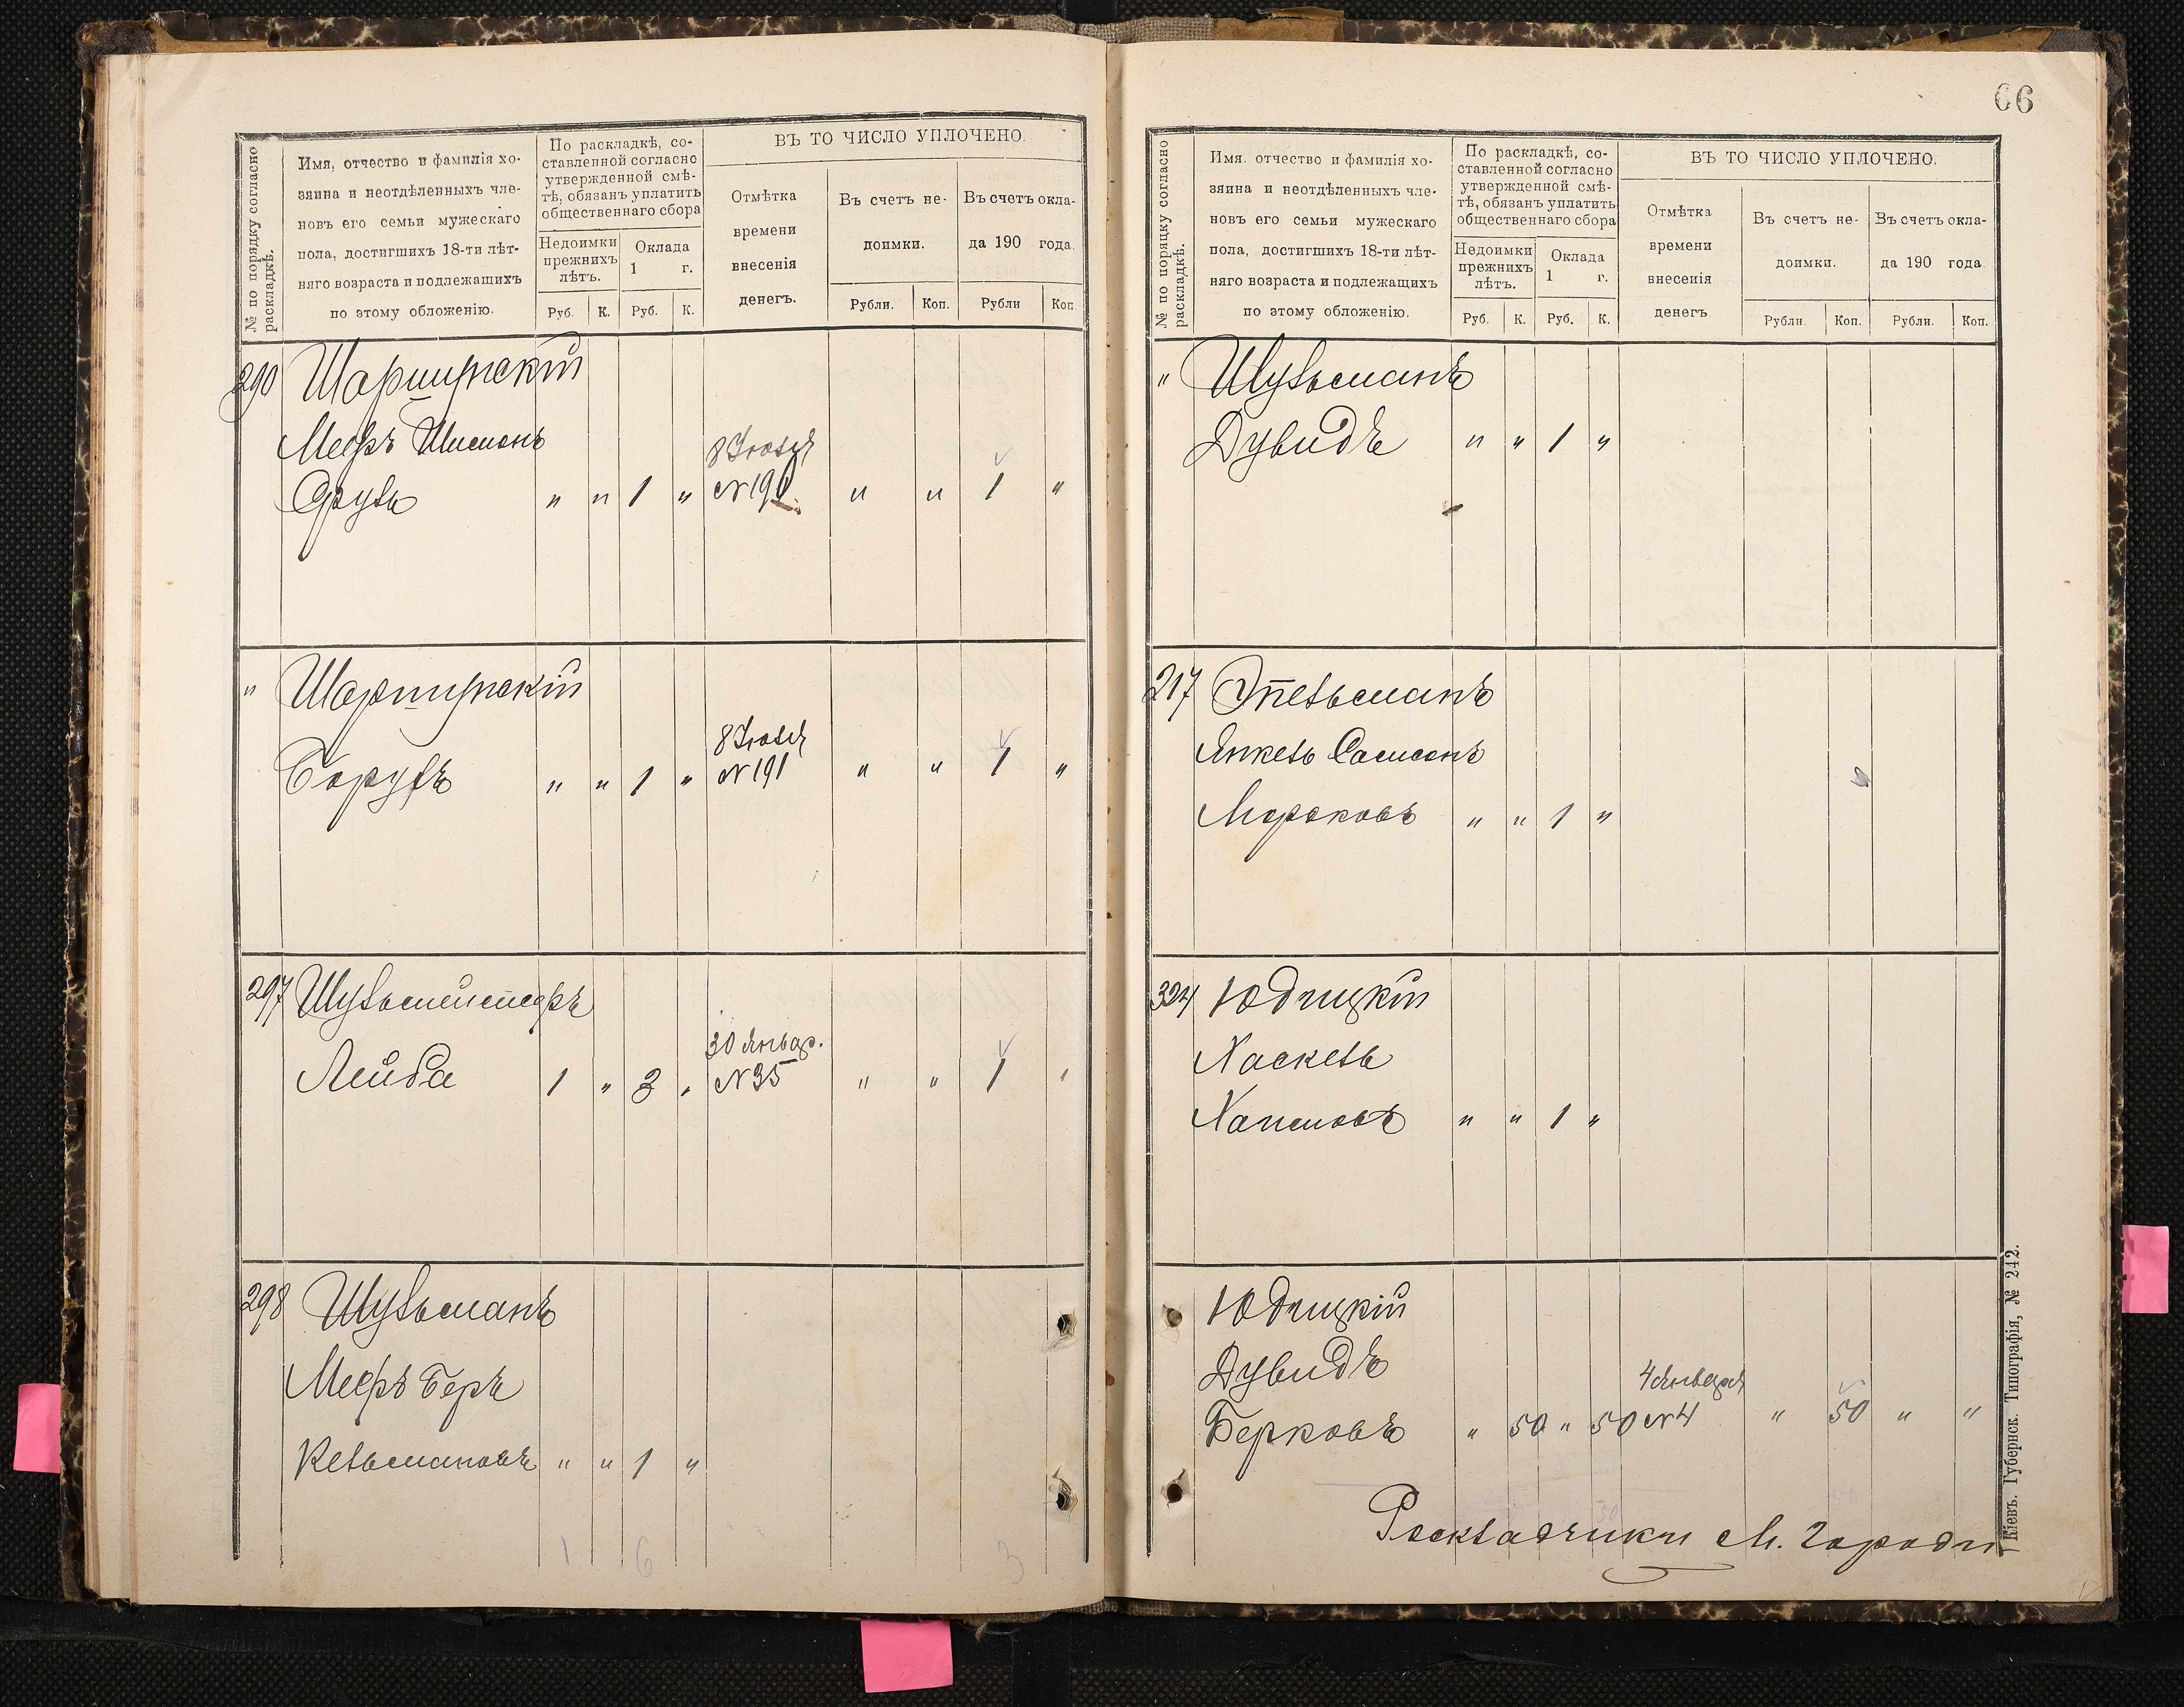 № по порядку согласно
раскладкѣ.
Имя, отчество и фамилія хо-
зяина и неотдѣленныхъ чле-
новъ его семьи мужескаго
пола, достигшихъ 18-ти лѣт-
няго возраста и подлежащихъ
по этому обложенію.
По раскладкѣ, со-
ставленной согласно
утвержденной смѣ-
тѣ, обязанъ уплатить
общественнаго сбора
Недоимки
прежнихъ
лѣтъ.
Оклада
1 г.
Руб. К. Руб. К.
ВЪ ТО ЧИСЛО УПЛОЧЕНО.
Отмѣтка
времени
внесенія
денегъ.
Въ счетъ не-
доимки.
Въ счетъ окла-
да 190 года.
Рубли. Коп. Рубли Коп.
290
Мееръ Шимонъ
8 Іюля
Сруль " " 1 " № 190 " " 1 "
"
8 Іюля
Борухъ " " 1 " № 191 " " 1 "
297 Шульмейстеръ
30 Январ.
Лейба 1 " 3 " № 35 " " 1 "
298 Шульманъ
Мееръ Беръ
Кельмановъ " " 1 "
1 6 3
66
№ по порядку согласно
раскладкѣ.
Имя. отчество и фамилія хо-
зяина и неотдѣленныхъ чле-
новъ его семьи мужескаго
пола, достигшихъ 18-ти лѣт-
няго возраста и подлежащихъ
по этому обложенію.
По раскладкѣ, со-
ставленной согласно
утвержденной смѣ-
тѣ, обязанъ уплатить
общественнаго сбора
Недоимки
прежнихъ
лѣтъ.
Оклада
1 г.
Руб. К. Руб. К.
ВЪ ТО ЧИСЛО УПЛОЧЕНО.
Отмѣтка
времени
внесенія
денегъ
Въ счетъ не-
доимки.
Въ счетъ окла-
да 190 года
Рубли. Коп. Рубли. Коп.
" Шульманъ
Дувидъ " " 1 "
217 Этельманъ
Янкель Самсонъ
Мордковъ " " 1 "
324 Юдицкій
Хаскель
Хаимовъ " " 1 "
Юдицкій
Дувидъ
4 Января
Берковъ " 50 " 50 № 4 " 50 " "
Раскладчики М. Город
Кіевъ. Губернск. Типографія, № 242.